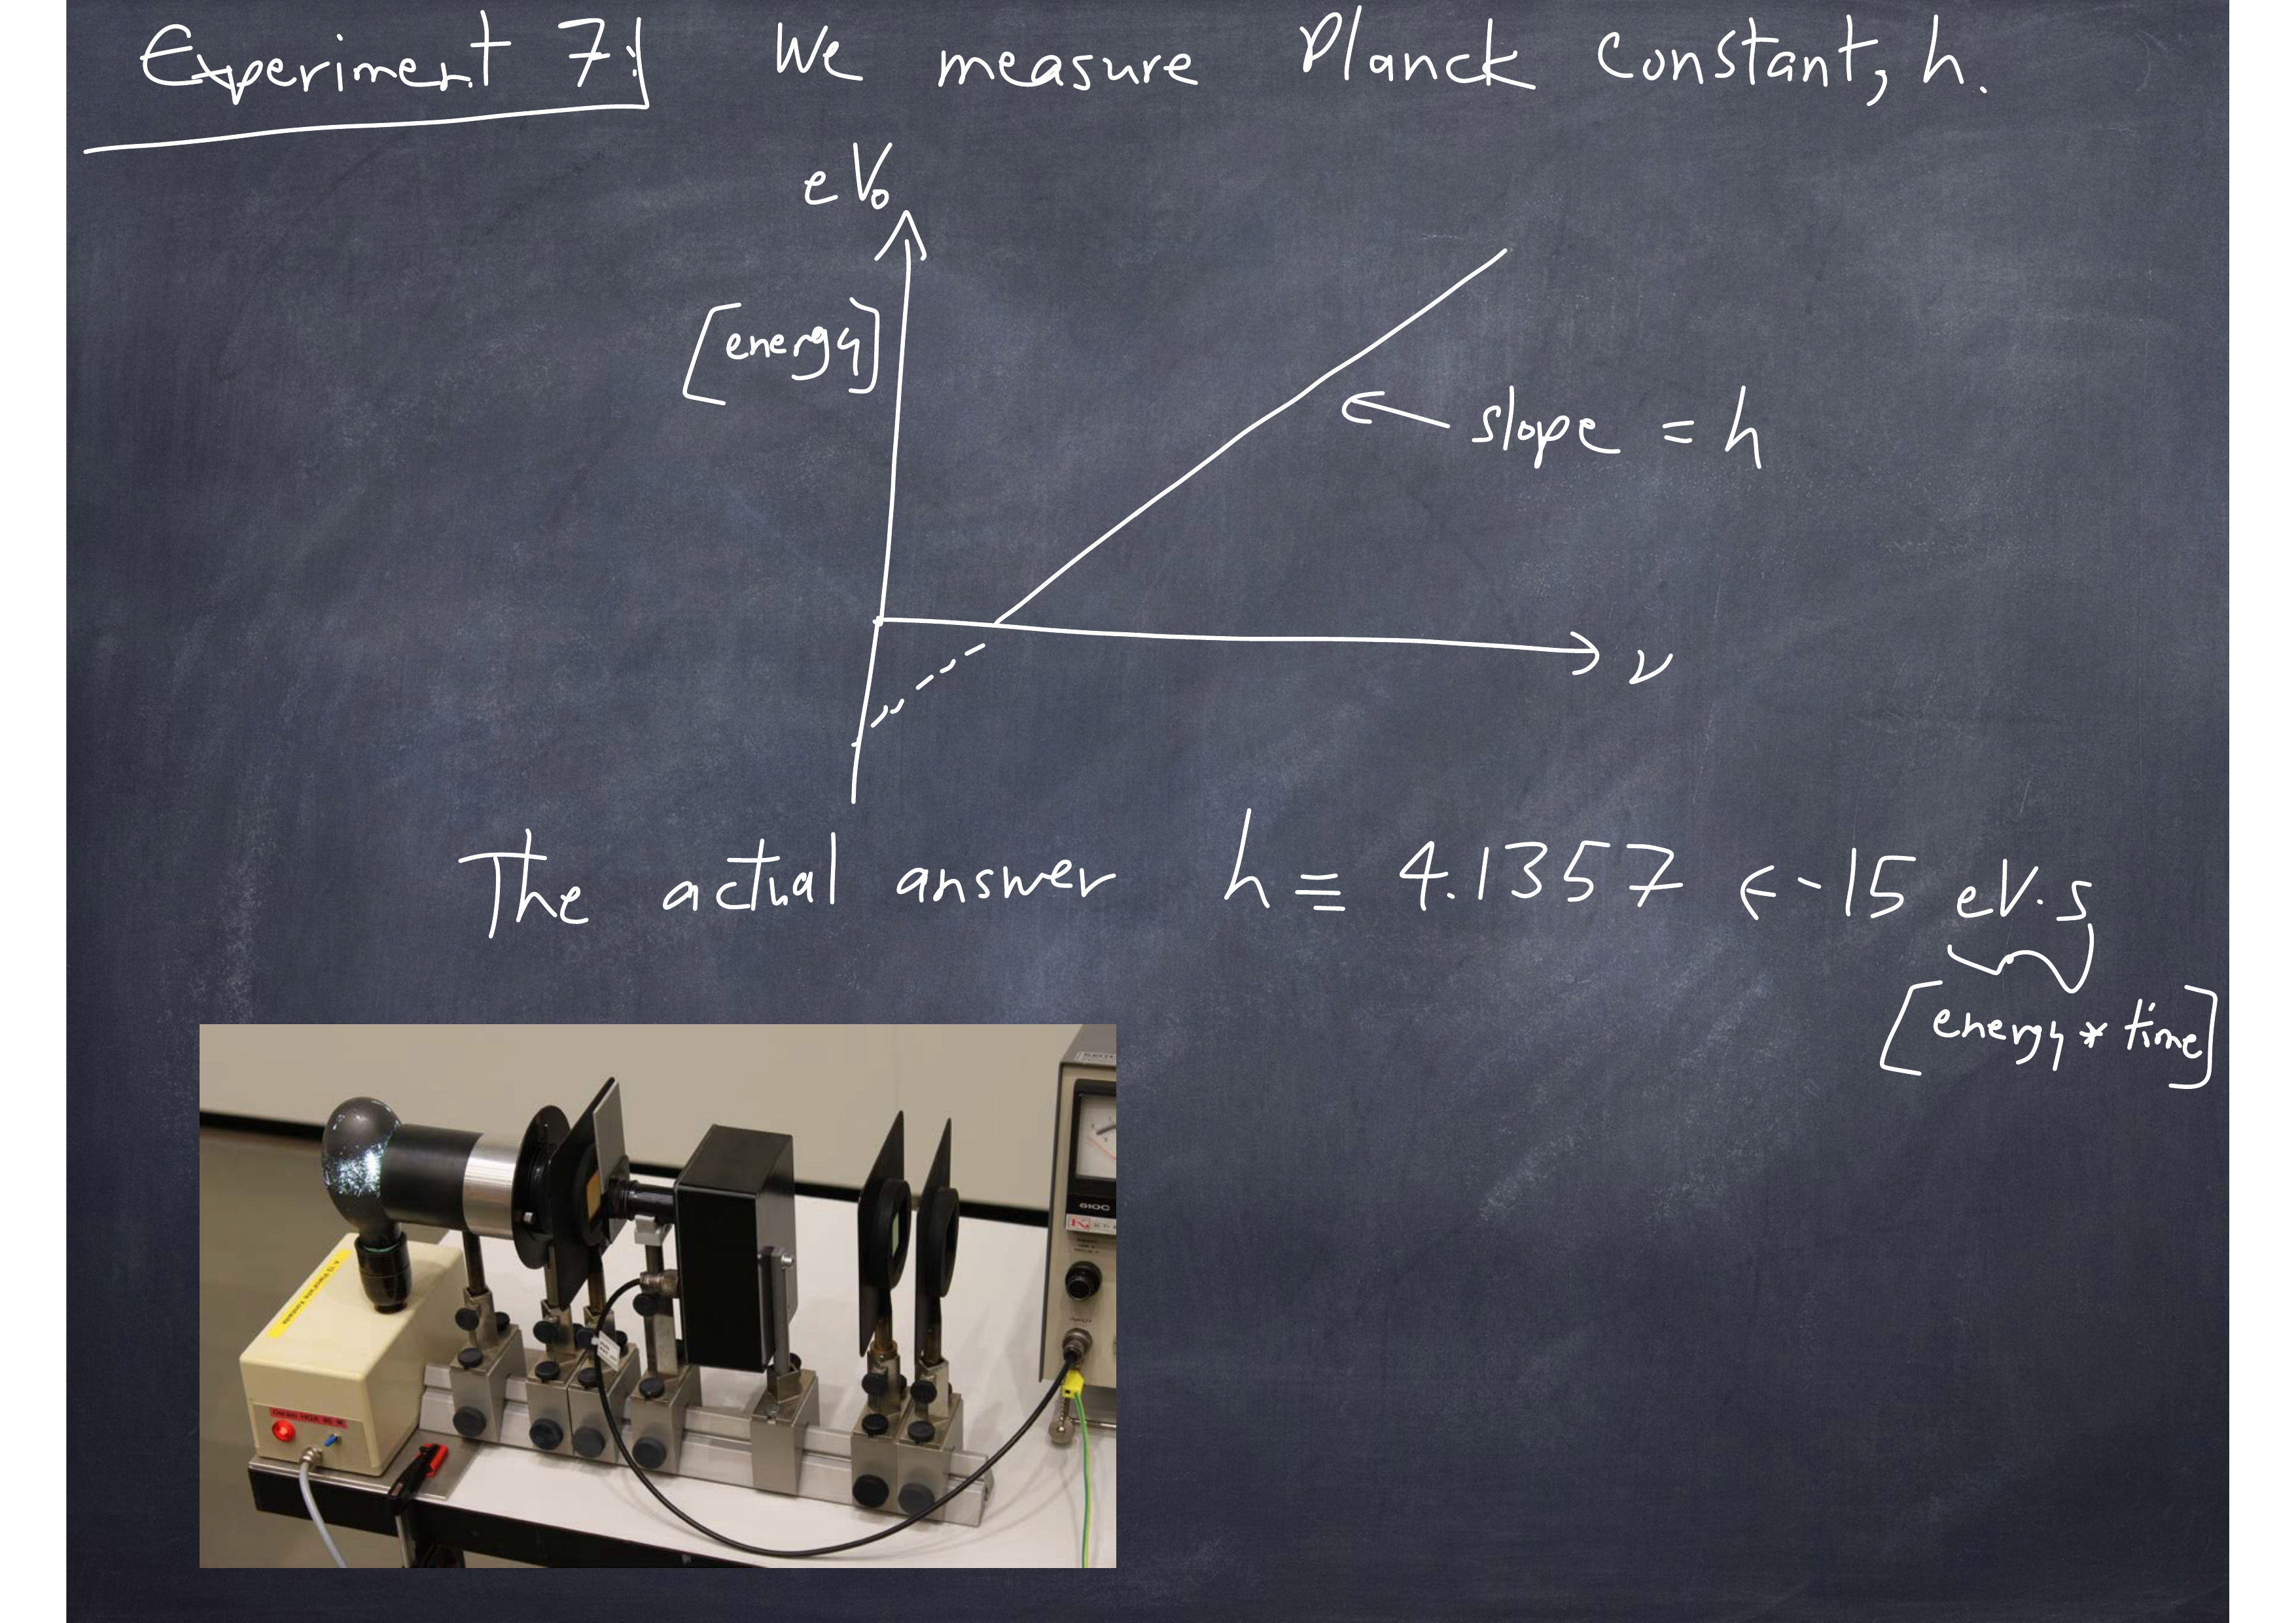 Experiment 7: We measure Planck Constant, h.
eV₀
[energy]
← slope = h
ν
The actual answer h ≡ 4.1357 E-15 eV·s
[energy * time]
610C
INPUT